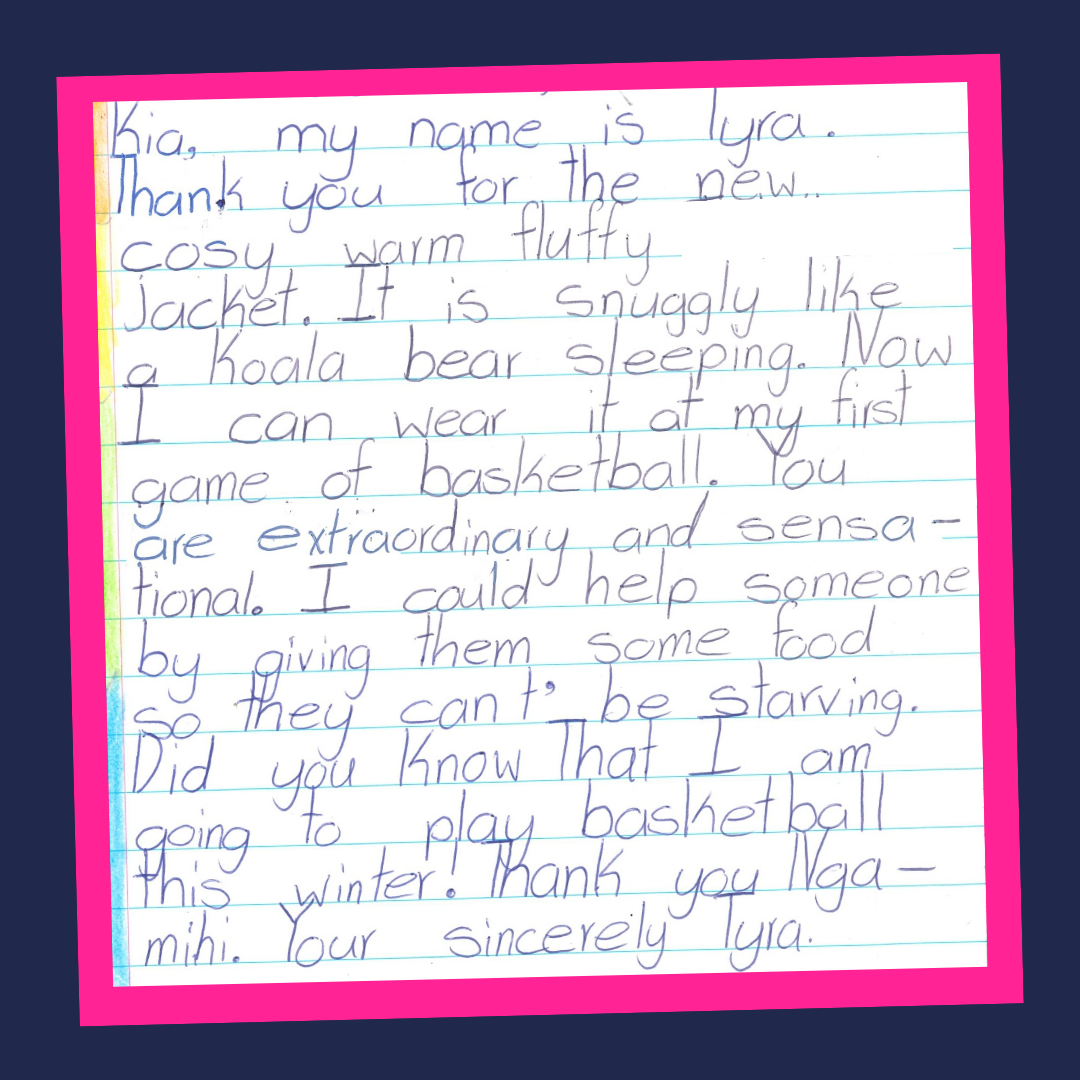 Kia, my name is Tyra.
Thank you for the new..
cosy warm fluffy
jacket. It is snuggly like
a Koala bear sleeping. Now
I can wear it at my first
game of basketball. You
are extraordinary and sensa-
tional. I could help someone
by giving them some food
so they can't be starving.
Did you Know That I am
going to play basketball
this winter! Thank you Nga-
mihi. Your sincerely Tyra.